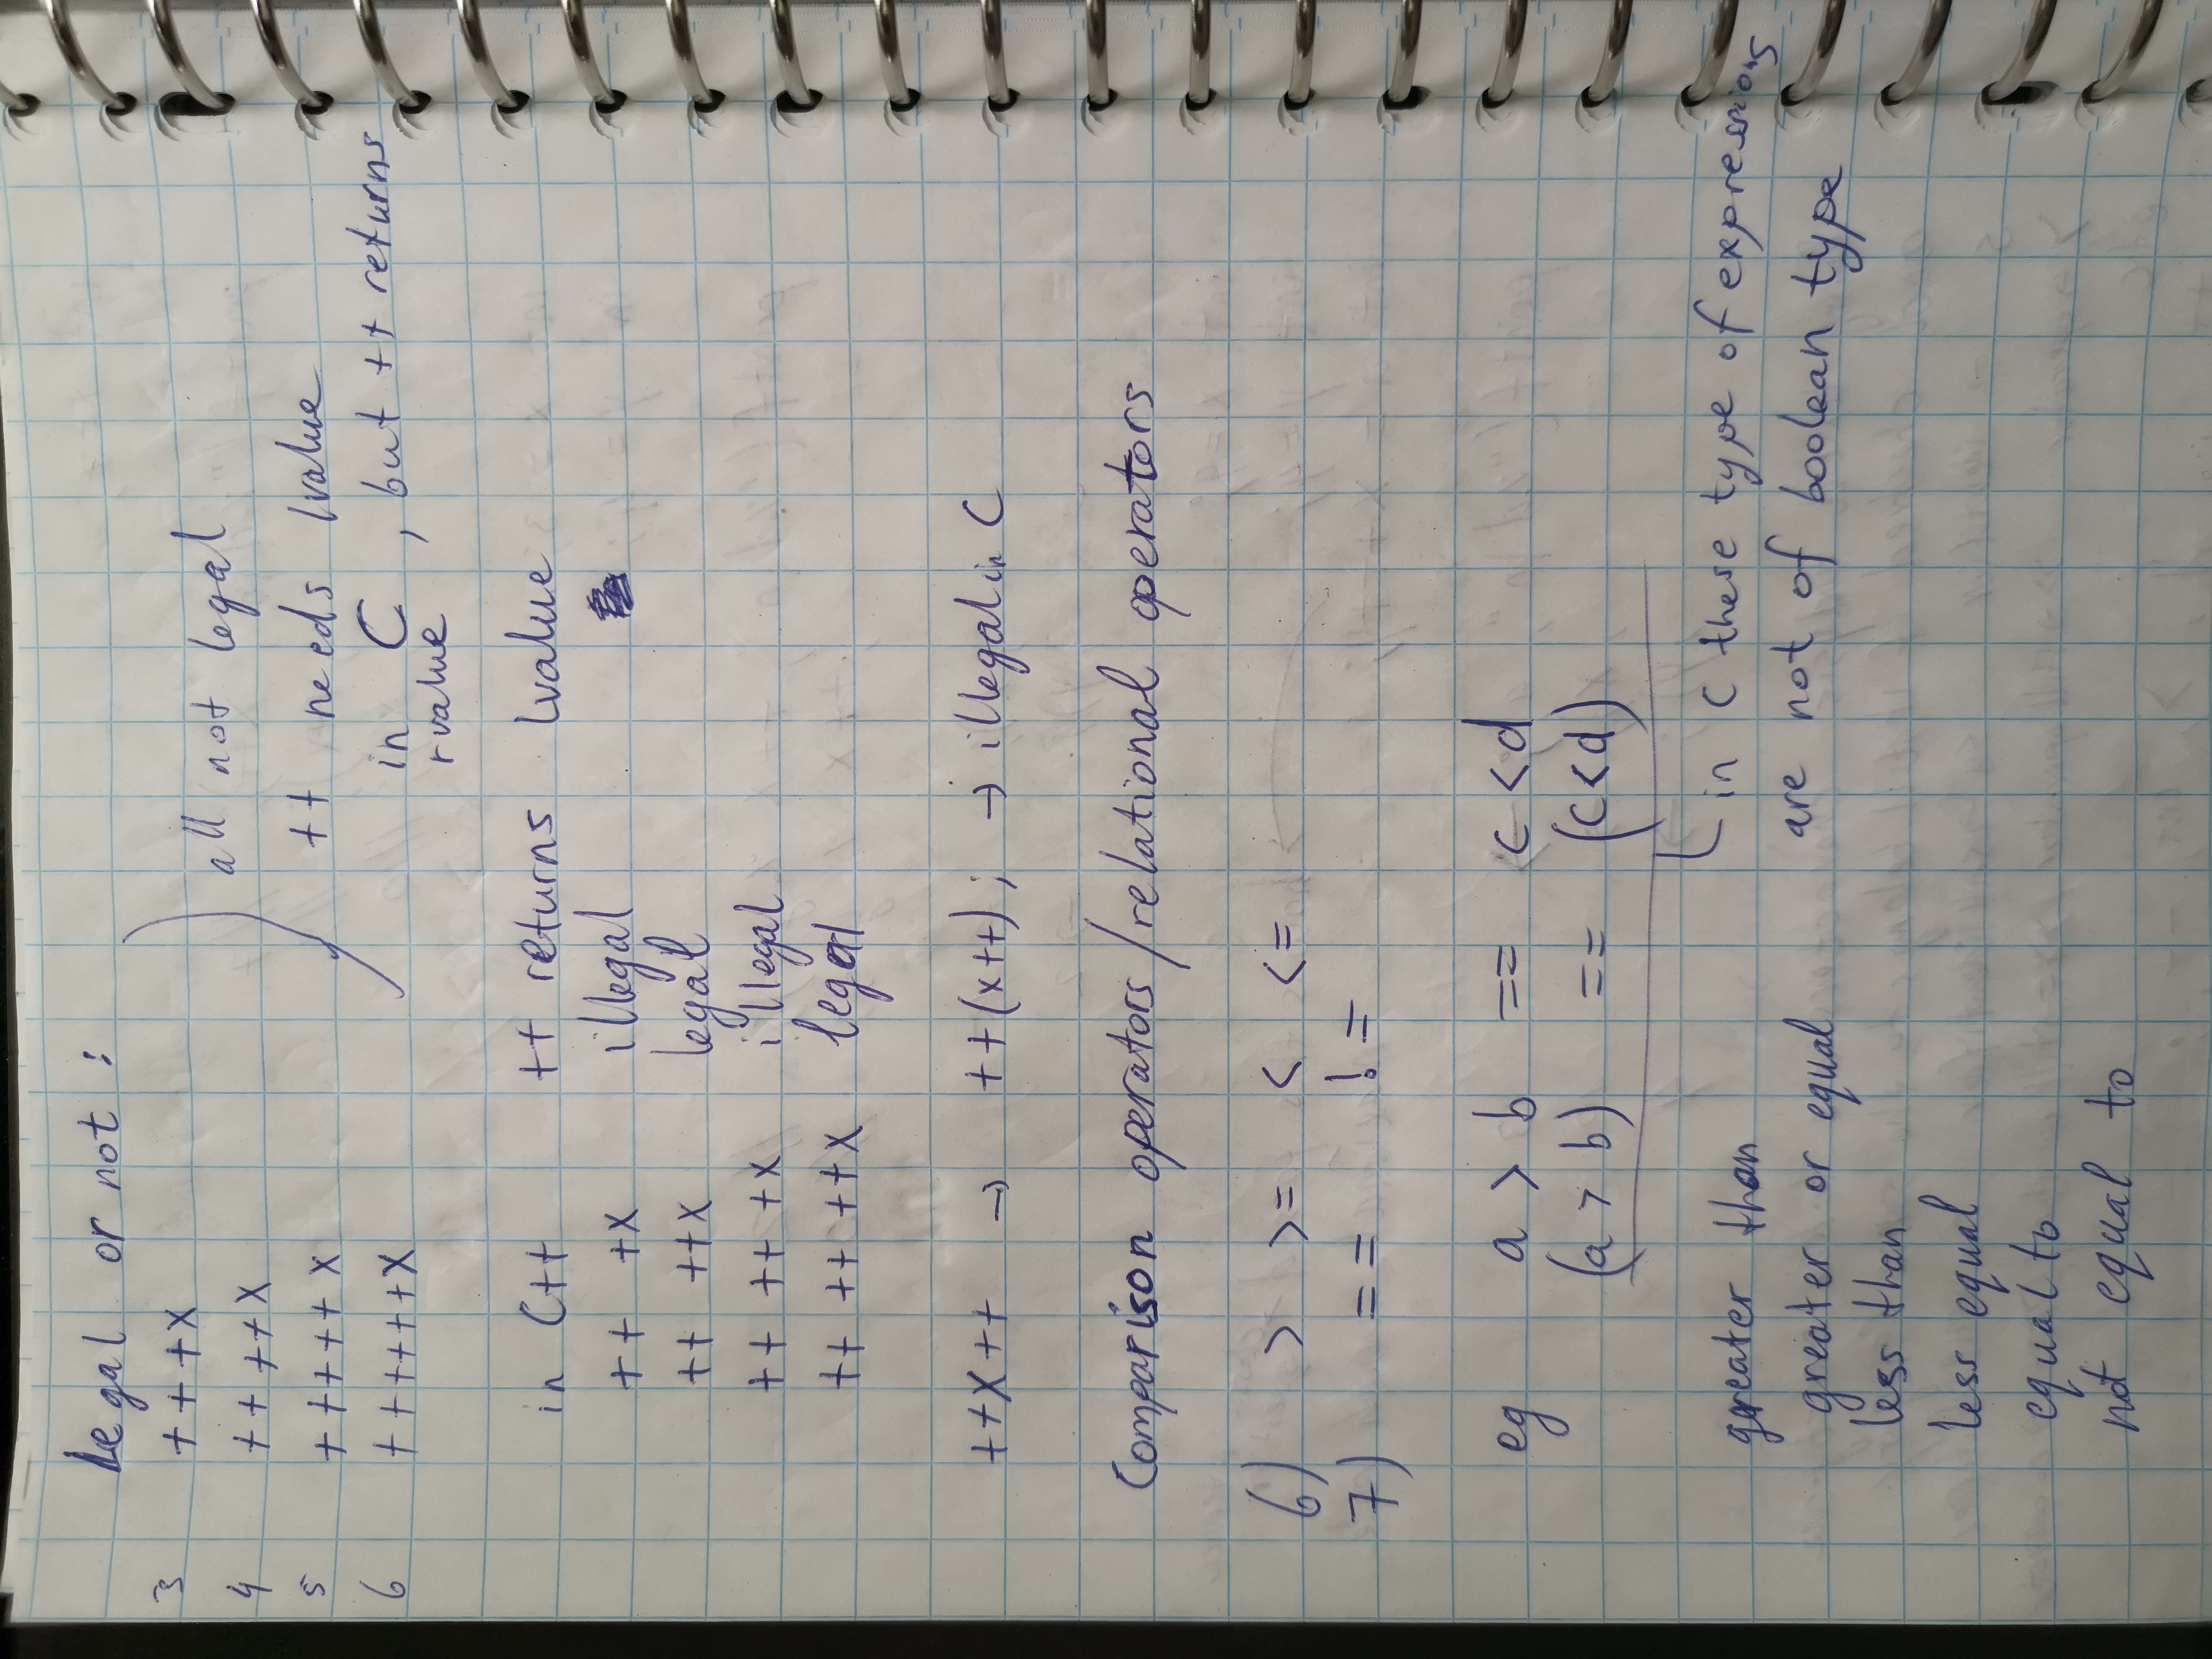 Legal or not :
3 +++x
4 ++ ++x
all not legal
5 +++++x
++ needs lvalue
6 ++++++x
in C, but ++ returns
rvalue
in C++ ++ returns lvalue
++ +x illegal
++ ++x legal
++ ++ +x illegal
++ ++ ++x legal
++x++ → ++(x++); → illegal in C
Comparison operators/relational operators
6) > >= < <=
7) == !=
eg a > b == c < d
(a > b) == (c < d)
in C these type of expressions
are not of boolean type
greater than
greater or equal
less than
less equal
equal to
not equal to